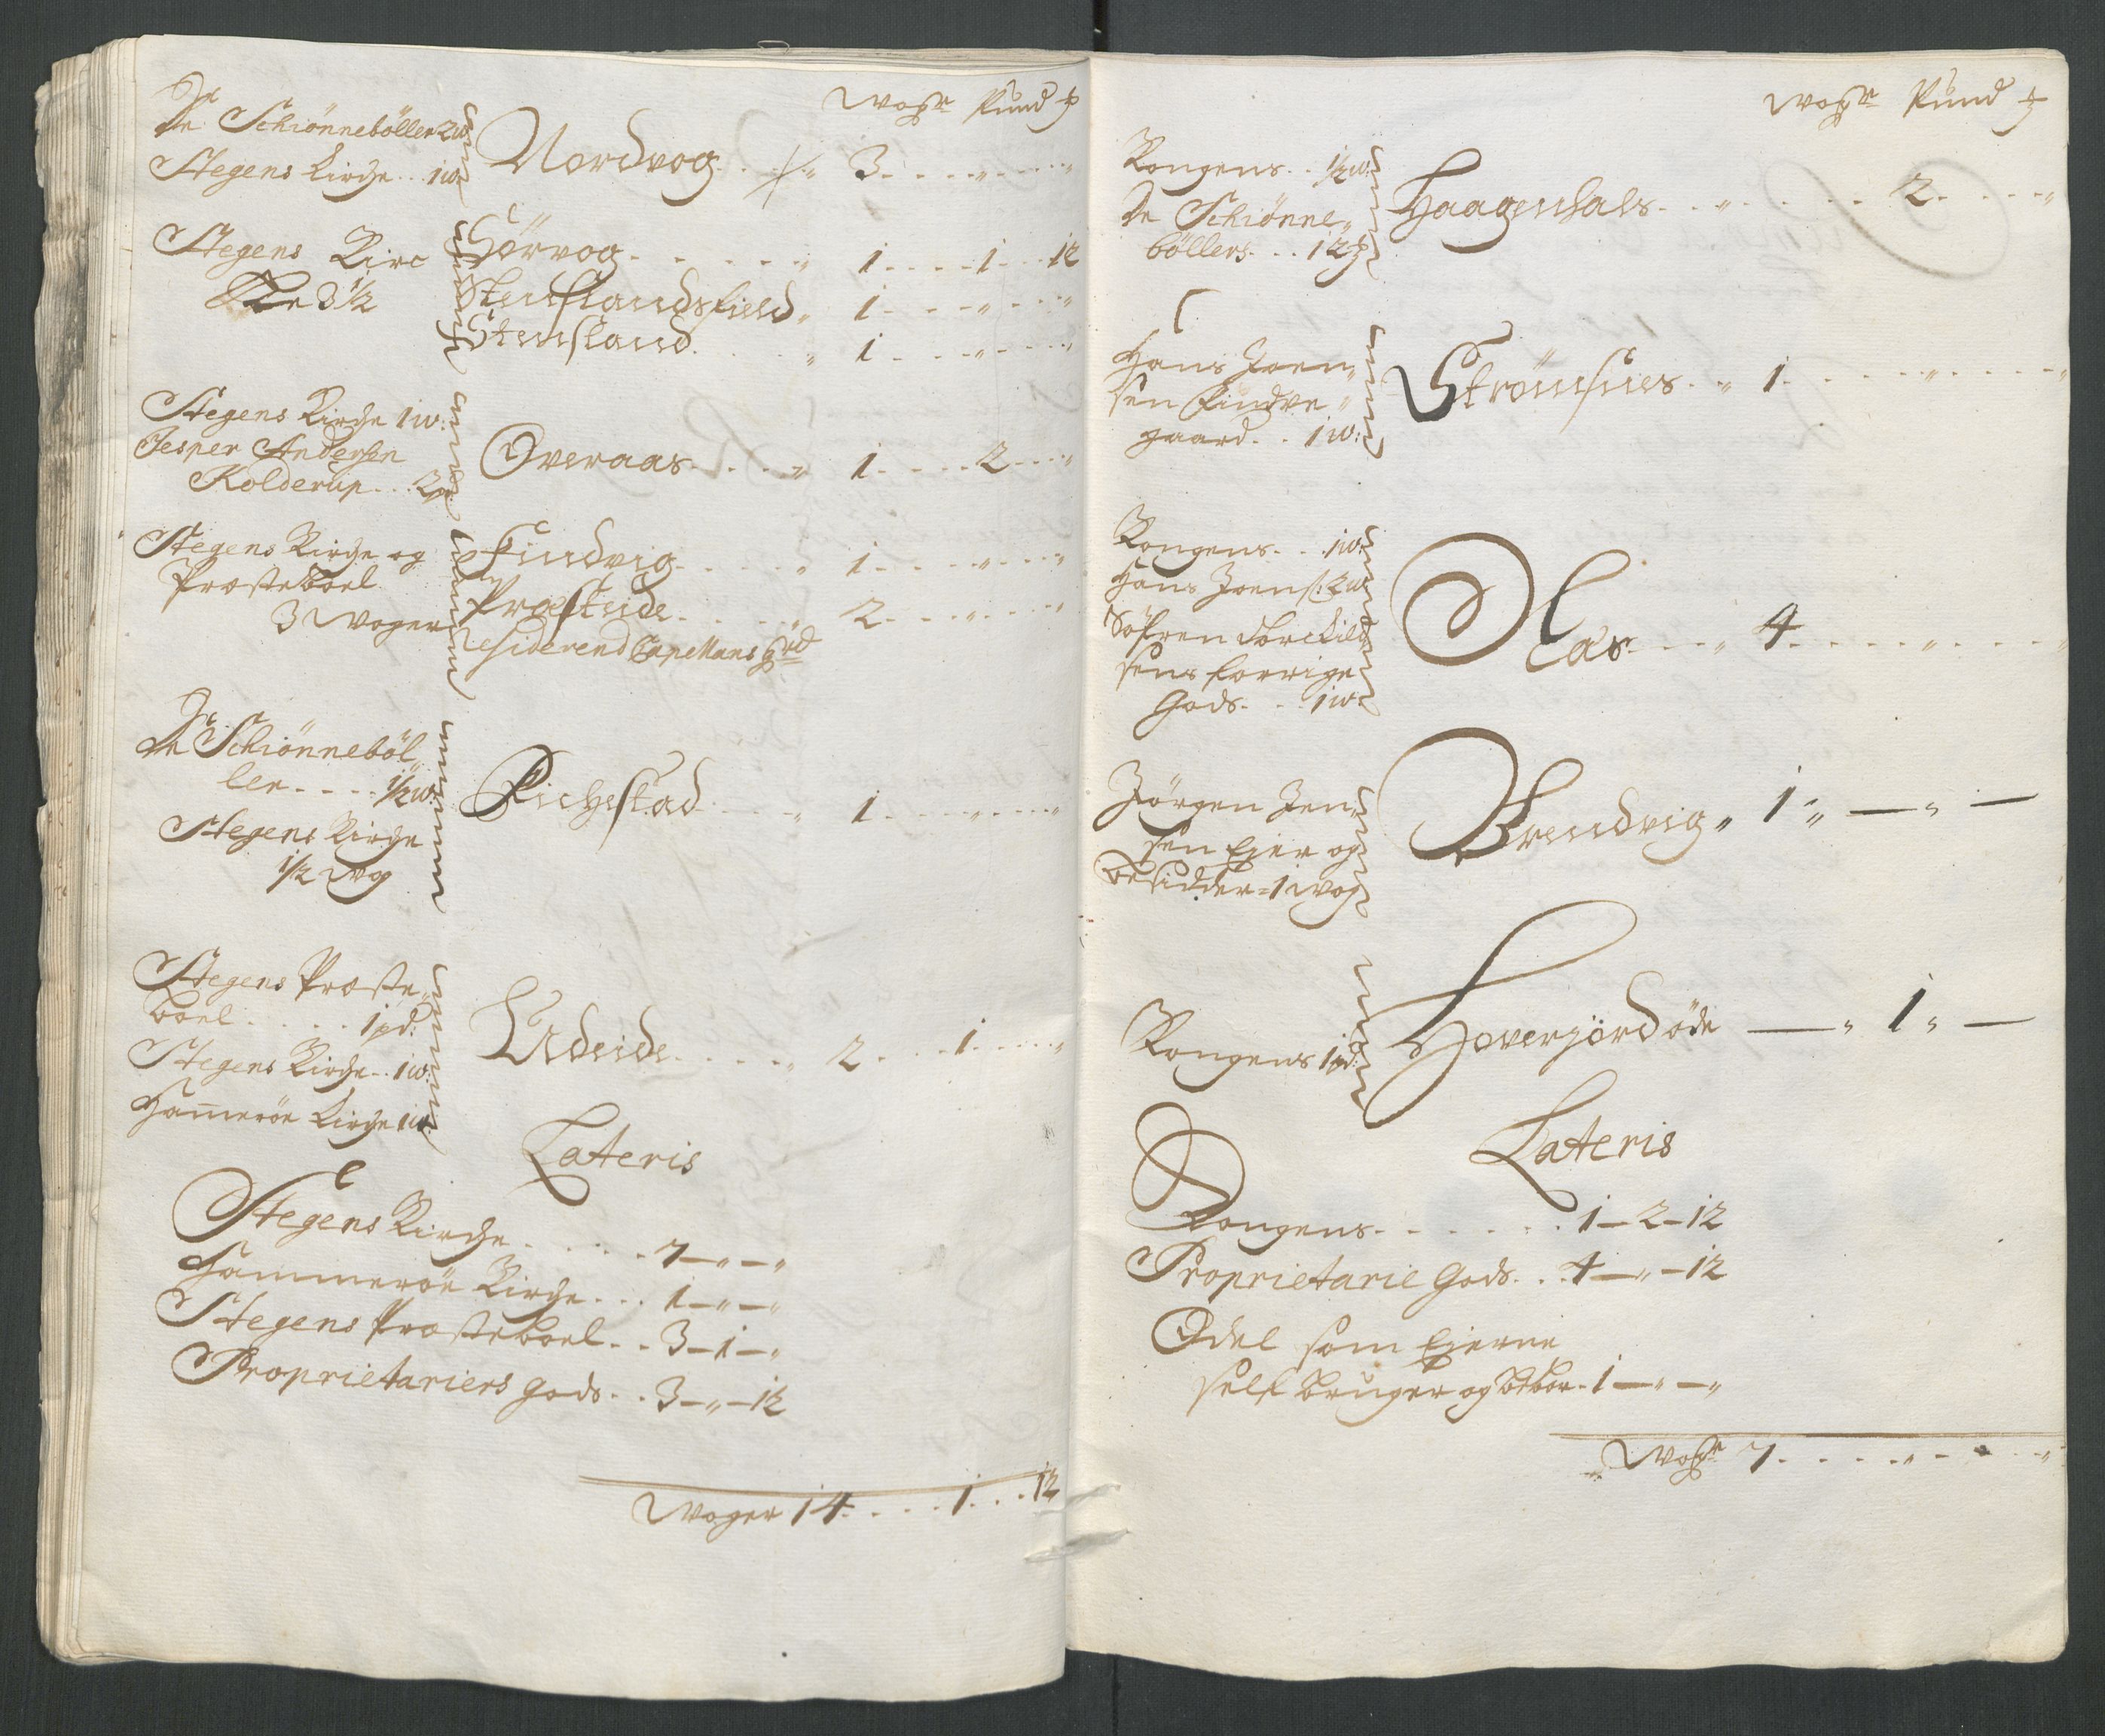 Wogr Pund ₰
De Schiönnebøller 2w:
Stegens Kirche .. 1w:
Nordvog . . . 3 . . . „ . . . „
Stegens Kirc
ke 3½
Hörvog . . . . „ 1 . . . 1 . . 12
Stenslandsfield „ 1 . . . „ . . . „
Stensland . . . „ 1 . . . „ . . . „
Stegens Kirche 1w:
Jesper Andersen
Kolderup . . 2p:
Overaas . . . . „ 1 . . . 2 . . . „
Stegens Kirche og
Præsteboel
3 Woger
Findvig . . . . „ 1 . . . „ . . . „
Præsteide . . . . „ 2 . . . „ . . . „
Residerend Capellans grd
De Schiönneböl„
ler . . . . ½w:
Stegens Kirche
½ Wog
Richestad . . . „ 1 . . . „ . . . „
Stegens Præste„
boel . . . . 1pd:
Stegens Kirche .. 1w:
Hamerøe Kirche 1w:
Udeide . . . . „ 2 . . . 1 . . . „
Lateris
Stegens Kirche . . . . 7 — „ — „
Hammerøe Kirche . . . 1 — „ — „
Stegens Præsteboel . . 3 — 1 — „
Proprietariers gods . . 3 — „ — 12
Woger 14 . . . . 1 . . . 12
Wogr Pund ₰
Kongens . . ½w:
De Schiönne„
böllers . . . 12₰
Haagenhals . . „ . . . . 2 . . . . „
Hans Joen„
sen Findve„
gaard . . 1w:
Strömsnes . . „ 1 . . . . „ . . . . „
Kongens . . . 1w:
Hans Joens: 2w:
Söfren Torckild„
sens forrige
Gods . . . 1w:
Aas . . . „ 4 . . . . „ . . . . „
Jörgen Jen„
sen Ejer og
besidder = 1 wog
Brendvig „ 1 „ — „ —
Kongens 1pd:
Hoverjord öde — „ 1 „ —
Lateris
Kongens . . . . . . 1 — 2 — 12
Proprietarie Gods . . . 4 — „ — 12
Odel som Ejerne
self bruger og beboer . 1 — „ — „
Wogr 7 . . . . „ . . . . „